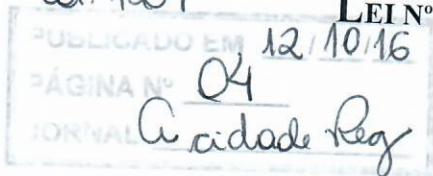 LEI Nº
PUBLICADO EM 12/10/16
PÁGINA Nº 04
JORNAL A cidade Reg